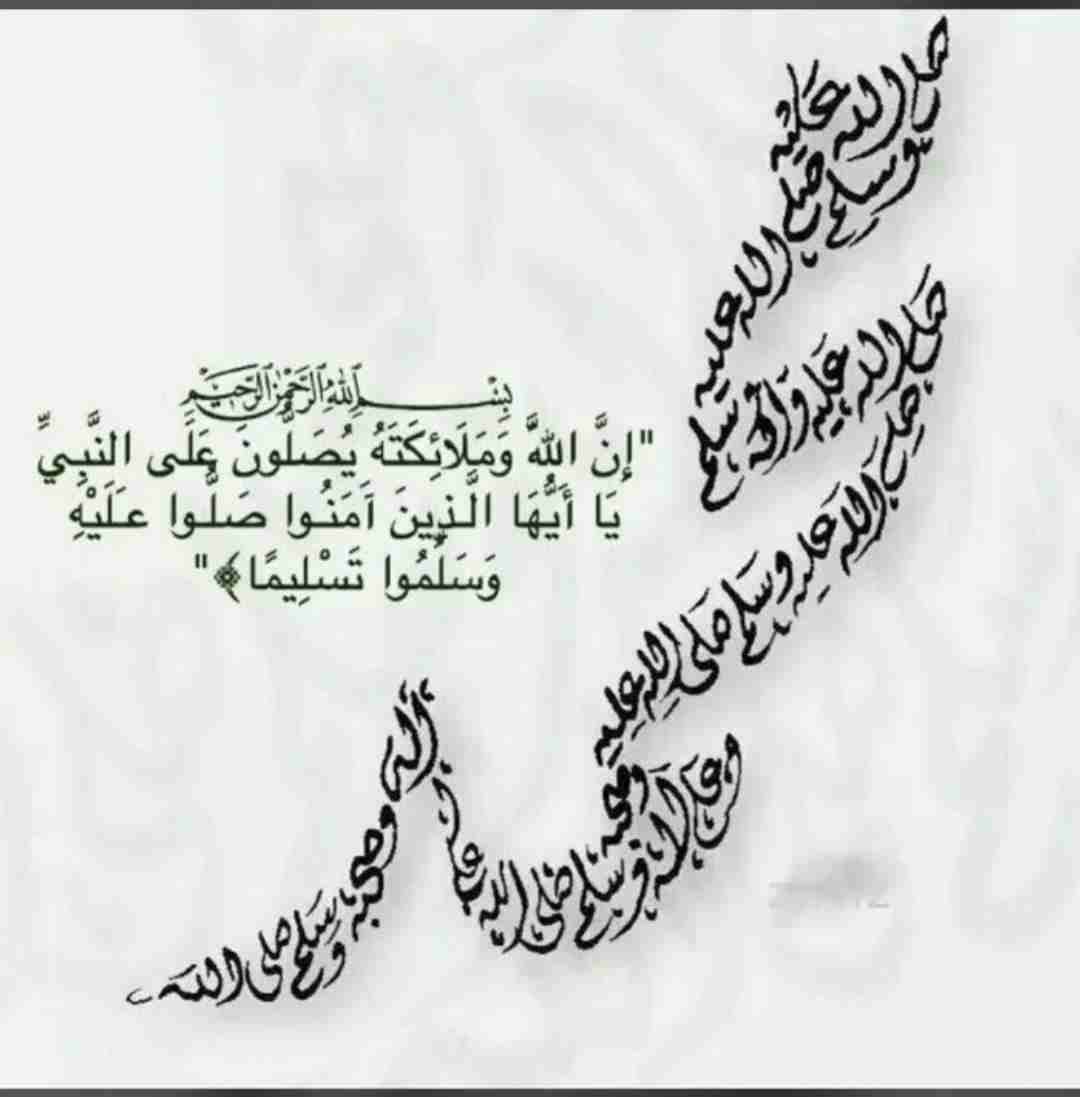 صلى الله عليه وسلم
صلى الله عليه
وآله وسلم
صلى الله عليه وآله
صلى الله عليه وسلم صلى الله عليه
وعلى آله وصحبه وسلم صلى الله عليه
وآله وصحبه وسلم صلى الله
بِسْمِ اللهِ الرَّحْمٰنِ الرَّحِيْمِ
"إِنَّ اللهَّ وَمَلَائِكَتَهُ يُصَلُّونَ عَلَى النَّبِيِّ
يَا أَيُّهَا الَّذِينَ آَمَنُوا صَلُّوا عَلَيْهِ
وَسَلِّمُوا تَسْلِيمًا﴾"